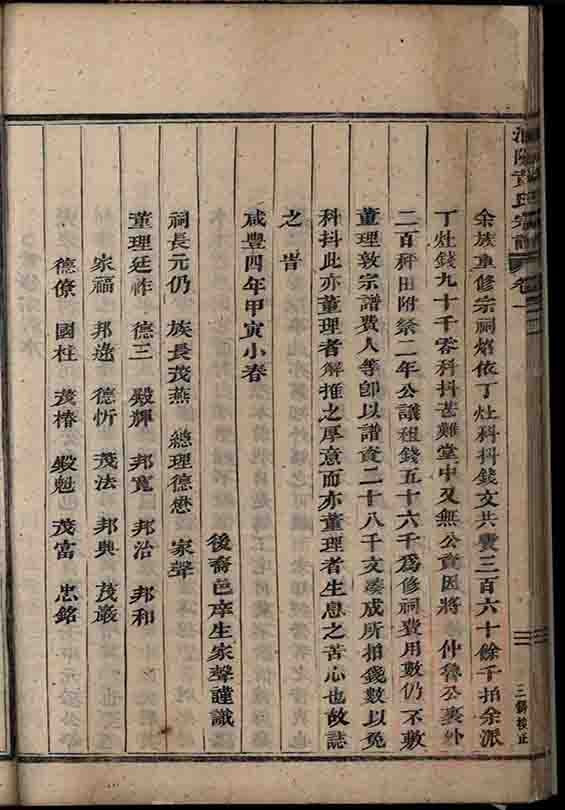 黃氏宗譜 卷一
三餘校正
余族重修宗祠焰依丁灶科抖錢文共費三百六十餘千拍余派
丁灶錢九十千零科抖甚難堂中又無公資因將 仲魯公裏外
二百秤田附祭二年公議租錢五十六千爲修祠費用數仍不敷
董理敦宗譜費人等卽以譜資二十八千文湊成所拍錢數以免
科抖此亦董理者解推之厚意而亦董理者生息之苦心也故誌
之 旹
咸豐四年甲寅小春
後裔邑庠生家聲謹識
祠長元仍 族長茂燕 總理德懋 家聲
董理廷祚 德三 殿輝 邦寬 邦治 邦和
家福 邦逵 德忻 茂法 邦興 茂巖
德僚 國柱 茂椿 殿魁 茂富 忠銘